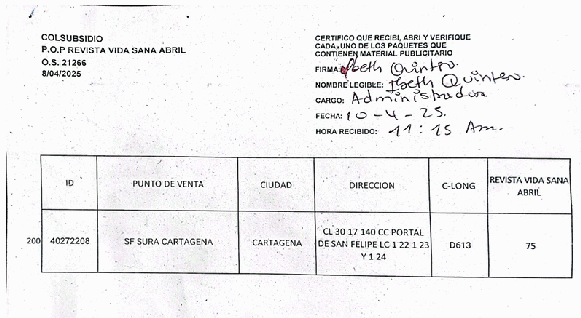 COLSUBSIDIO
P.O.P REVISTA VIDA SANA ABRIL
O.S. 21266
8/04/2025
CERTIFICO QUE RECIBI, ABRI Y VERIFIQUE
CADA UNO DE LOS PAQUETES QUE
CONTIENEN MATERIAL PUBLICITARIO
FIRMA: Ibeth Quintero.
NOMBRE LEGIBLE: Ibeth Quintero.
CARGO: Administrador
FECHA: 10-4-25.
HORA RECIBIDO: 11:15 Am.
ID PUNTO DE VENTA CIUDAD DIRECCION C-LONG REVISTA VIDA SANA ABRIL
200 40272208 SF SURA CARTAGENA CARTAGENA CL 30 17 140 CC PORTAL DE SAN FELIPE LC 1 22 1 23 Y 1 24 D613 75